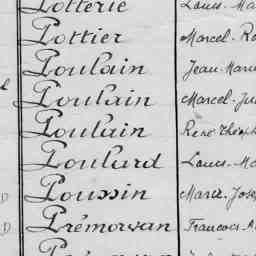 Potterie Louis-Ma
Pottier Marcel-Re
Poulain Jean-Marie
Poulain Marcel-Ju
Poulain René Théoph
Poulard Louis-Ma
D Poussin Marie-Jose
D Prémorvan François-A